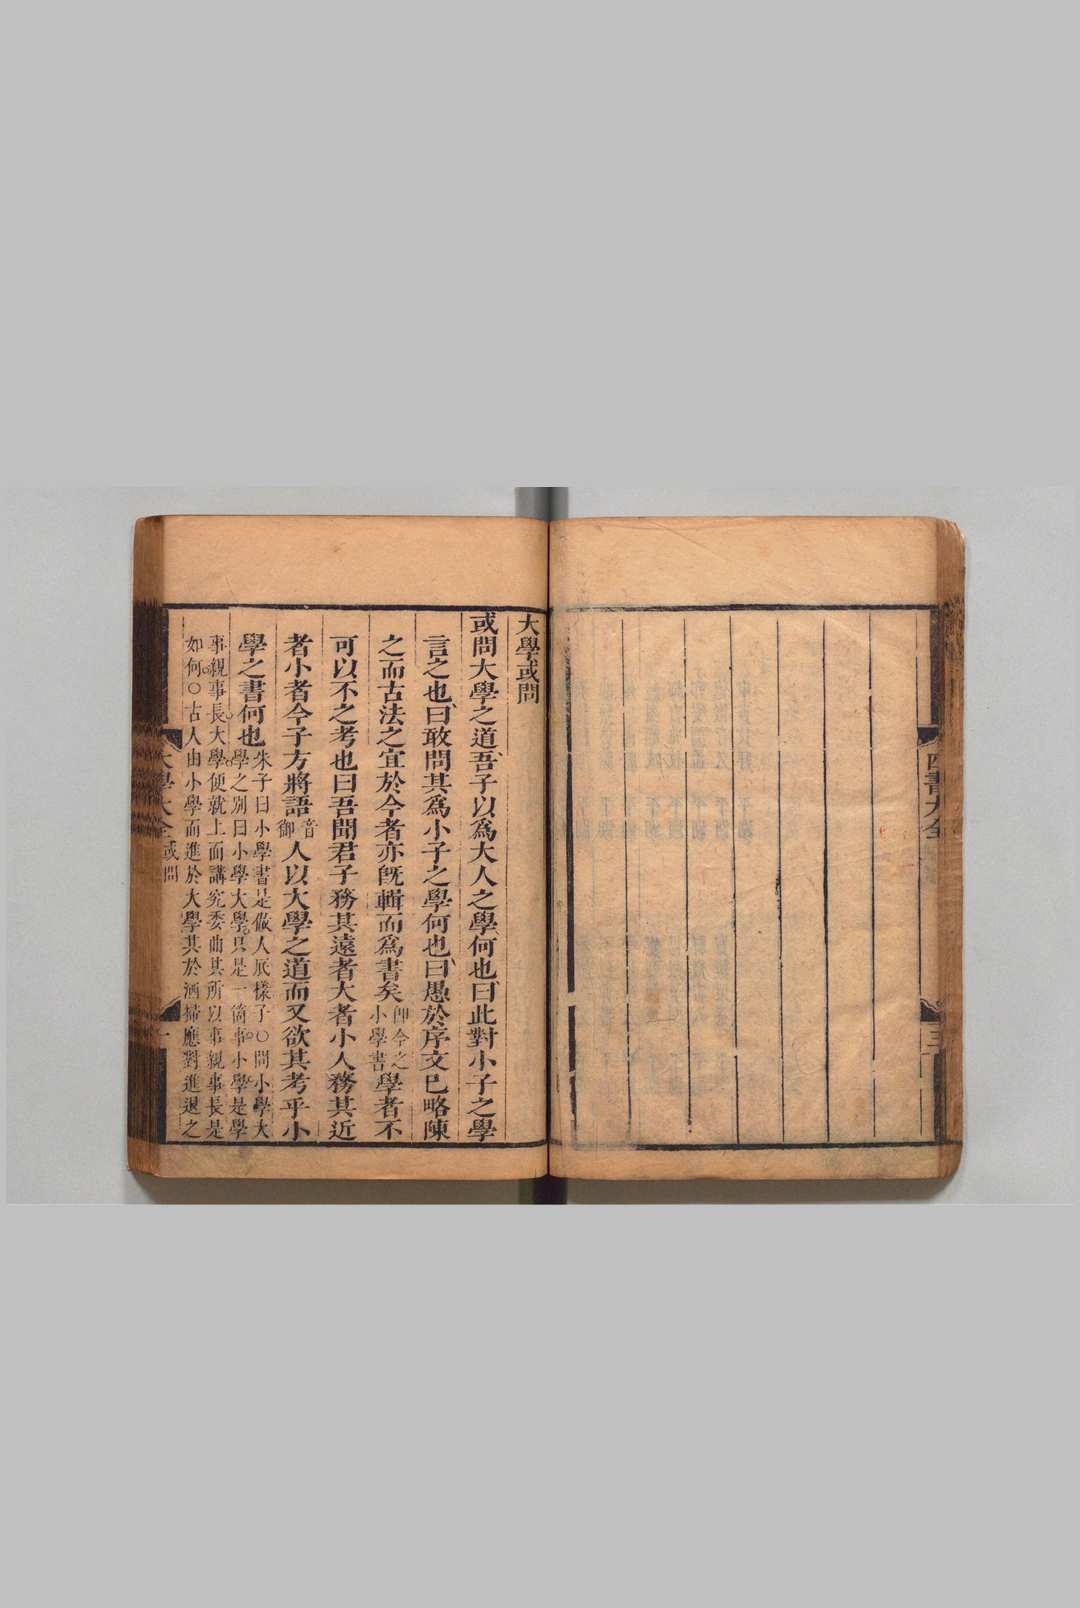 四書大全
大學或問
或問大學之道吾子以爲大人之學何也曰此對小子之學
言之也曰敢問其爲小子之學何也曰愚於序文已略陳
之而古法之宜於今者亦旣輯而爲書矣卽今之小學書學者不
可以不之考也曰吾聞君子務其遠者大者小人務其近
者小者今子方將語音御人以大學之道而又欲其考乎小
學之書何也朱子曰小學書是做人底樣子○問小學大
學之別曰小學大學只是一箇事小學是學
事親事長大學便就上面講究委曲其所以事親事長是
如何○古人由小學而進於大學其於洒掃應對進退之
大學大全或問
一